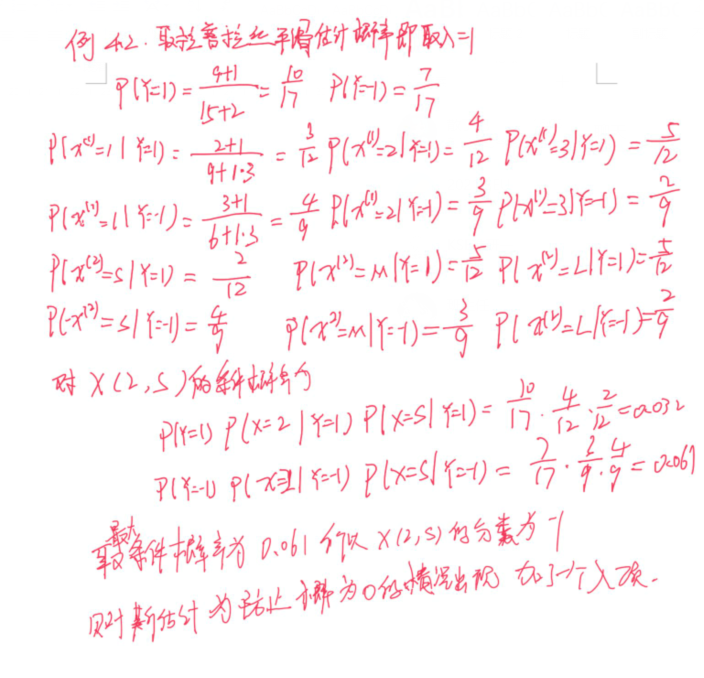 例 4.2. 取拉普拉丝平滑估计概率即取λ=1
P(Y=1) = (9+1)/(15+2) = 10/17 P(Y=-1) = 7/17
P(x⁽¹⁾=1|Y=1) = (2+1)/(9+1·3) = 3/12 P(x⁽¹⁾=2|Y=1) = 4/12 P(x⁽¹⁾=3|Y=1) = 5/12
P(x⁽¹⁾=1|Y=-1) = (3+1)/(6+1·3) = 4/9 P(x⁽¹⁾=2|Y=-1) = 3/9 P(x⁽¹⁾=3|Y=-1) = 2/9
P(x⁽²⁾=S|Y=1) = 2/12 P(x⁽²⁾=M|Y=1) = 5/12 P(x⁽²⁾=L|Y=1) = 5/12
P(x⁽²⁾=S|Y=-1) = 4/9 P(x⁽²⁾=M|Y=-1) = 3/9 P(x⁽²⁾=L|Y=-1) = 2/9
对 X(2,S)的条件概率为
P(Y=1) P(X=2|Y=1) P(X=S|Y=1) = 10/17 · 4/12 · 2/12 = 0.032
P(Y=-1) P(X=2|Y=-1) P(X=S|Y=-1) = 7/17 · 3/9 · 4/9 = 0.061
取最大条件概率为 0.061 所以 X(2,S)的分类为 -1
贝叶斯估计 为防止概率为0的情况出现 加了一个λ项.